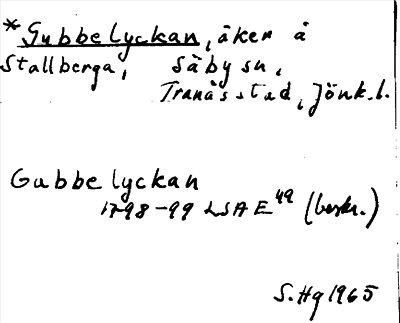 *Gubbelyckan, åker å
Stallberga, Säby sn,
Tranås stad, Jönk.l.
Gubbelyckan
1798-99 LSA E49 (beskr.)
S.Hg 1965